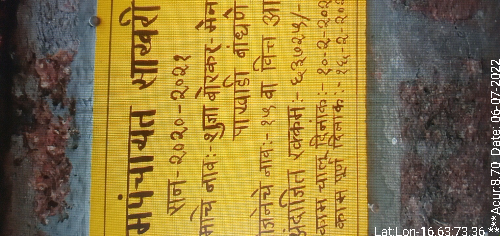 मपंचायत साखरी
सन-२०२०-२०२१
मोचे नाव:- भुजा बोरकर-मेन
पाष्पाडी बांधणे
जनेचे नाव:- १५ वा वित्त आ
अंदाजित रक्कम:- ६३७०२५/-
काम चालू दिनांक:- १०-२-२०२
काम पूर्ण दिनांक:- १६-२-२०२
Lat Lon-16.63,73.36
***Acur:8.70, Date:06-07-2022